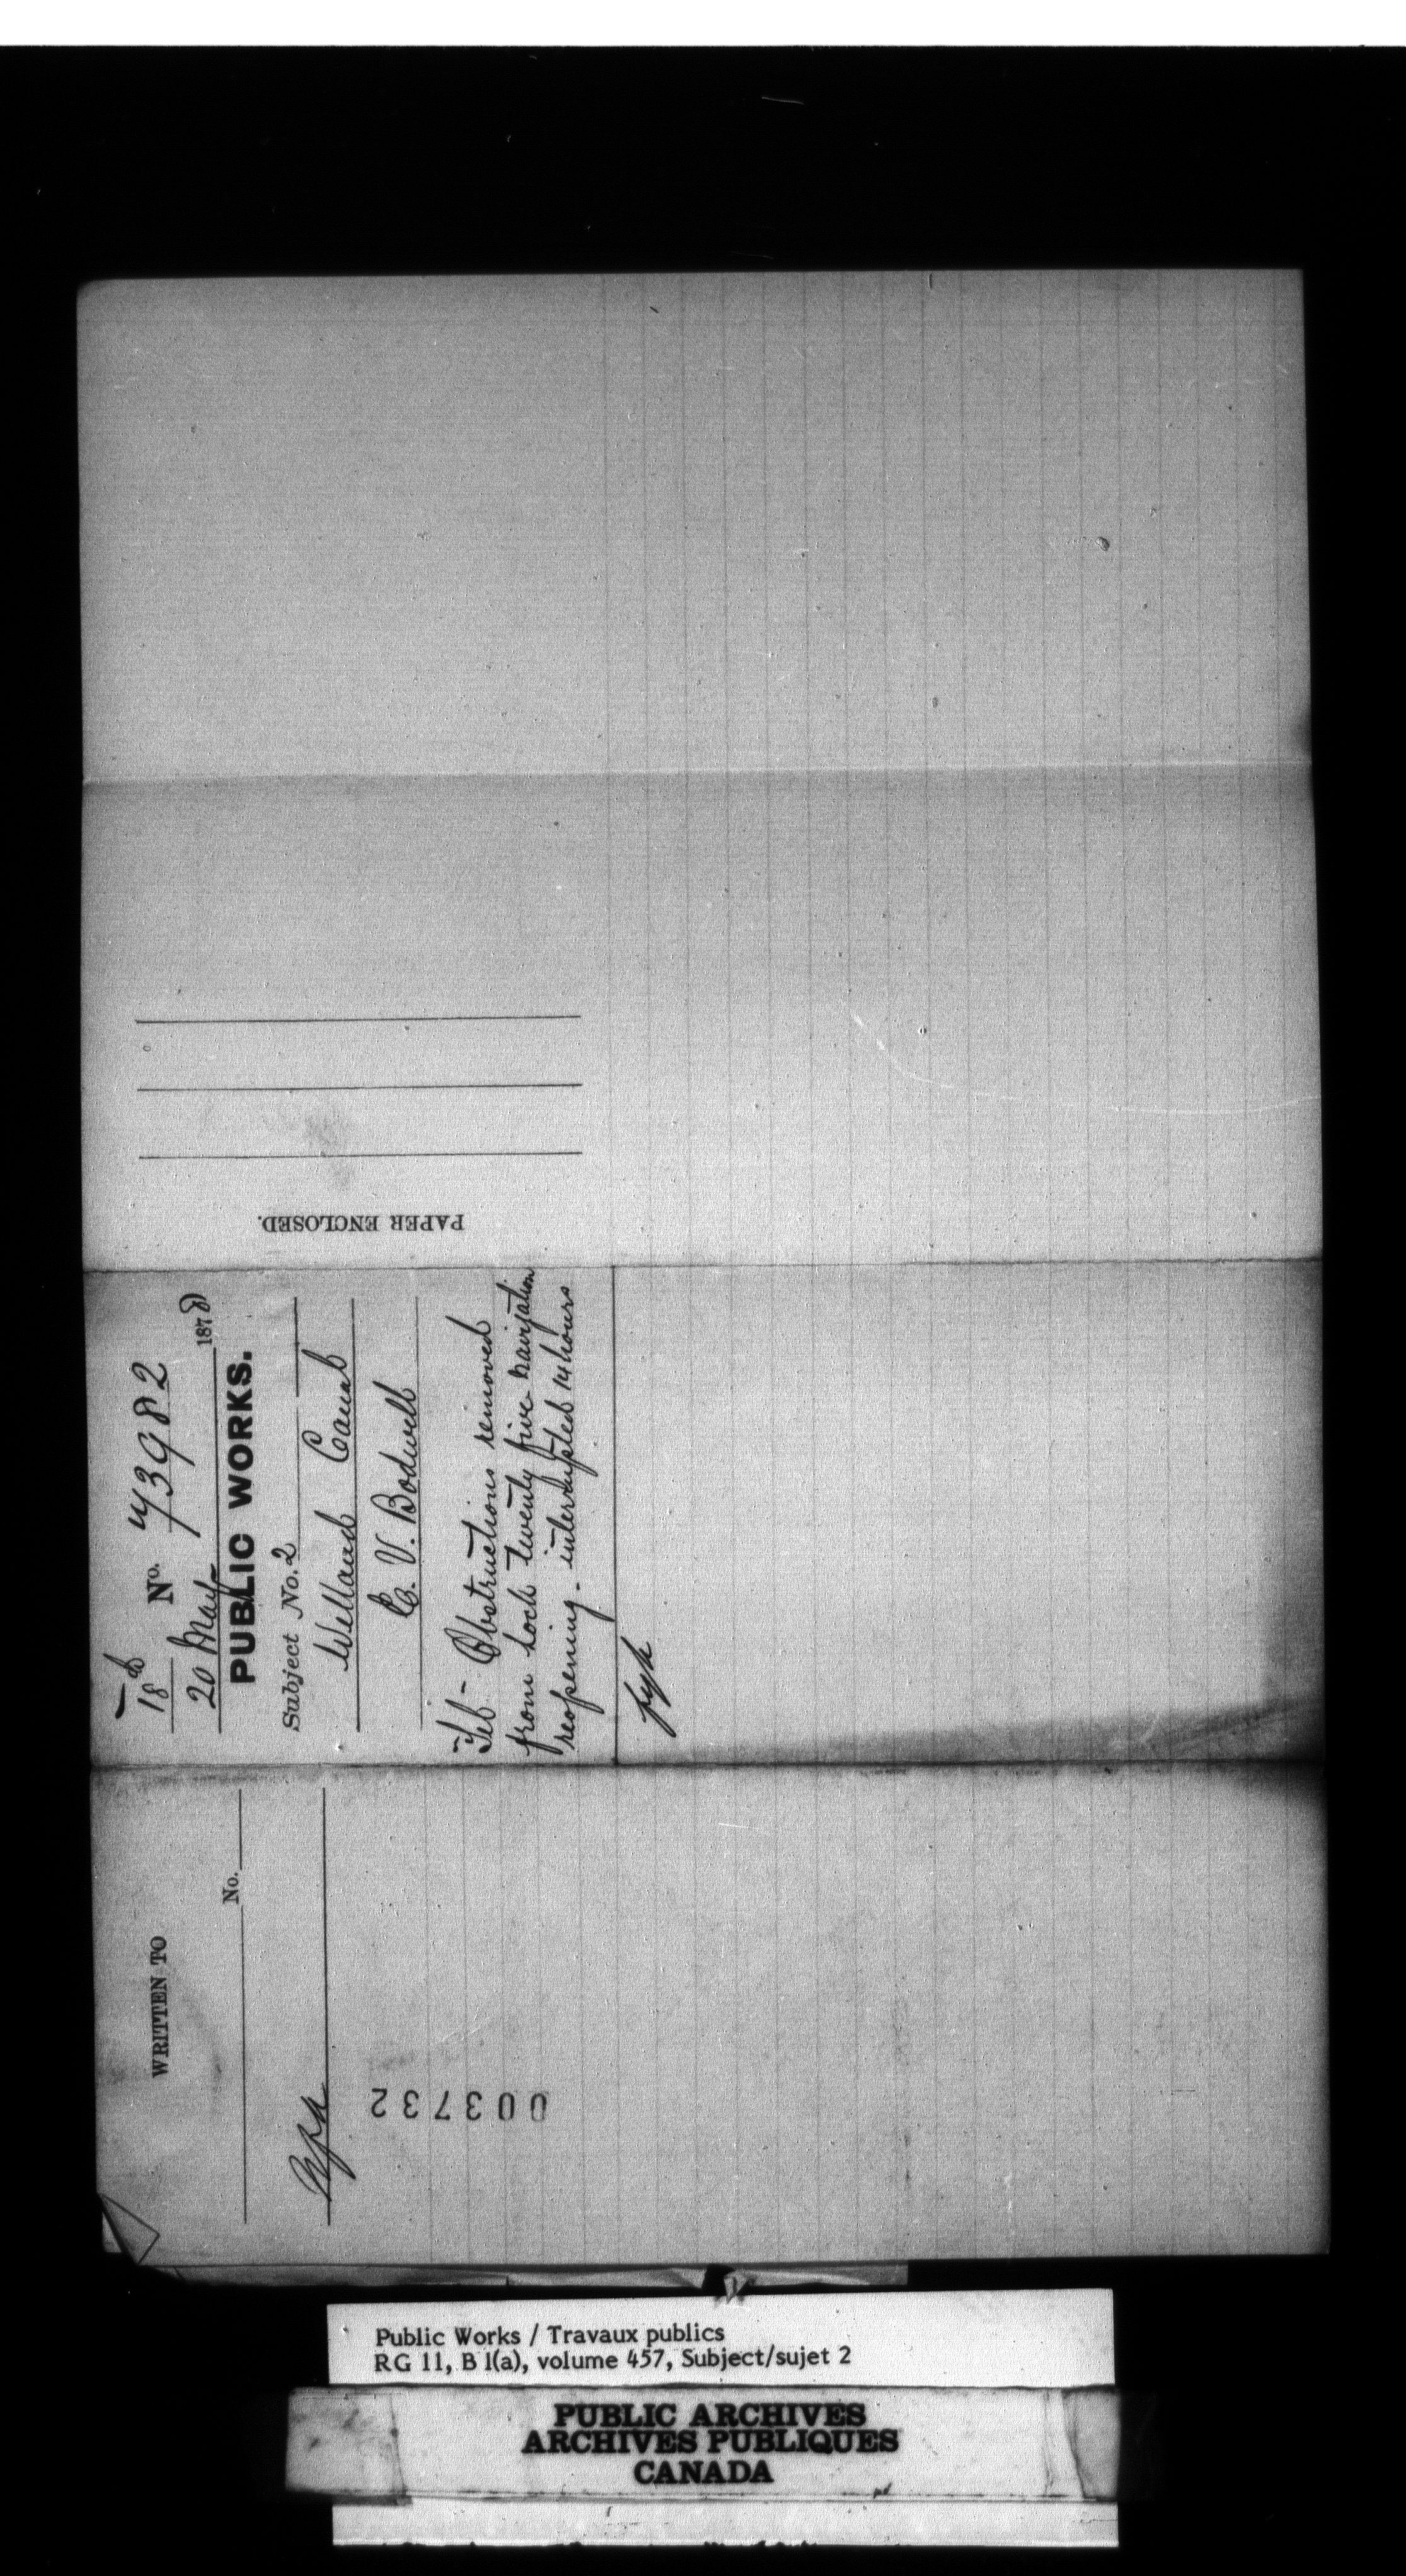 18th No. 73982
20 May 1878
PUBLIC WORKS.
Subject No. 2
Welland Canal
C. V. Bodwell
Tel- Obstructions removed
from Lock twenty five navigation
reopening - interrupted 14 hours
fyh
PAPER ENCLOSED.
WRITTEN TO
No.
003732
Public Works / Travaux publics
RG 11, B 1(a), volume 457, Subject/sujet 2
PUBLIC ARCHIVES
ARCHIVES PUBLIQUES
CANADA